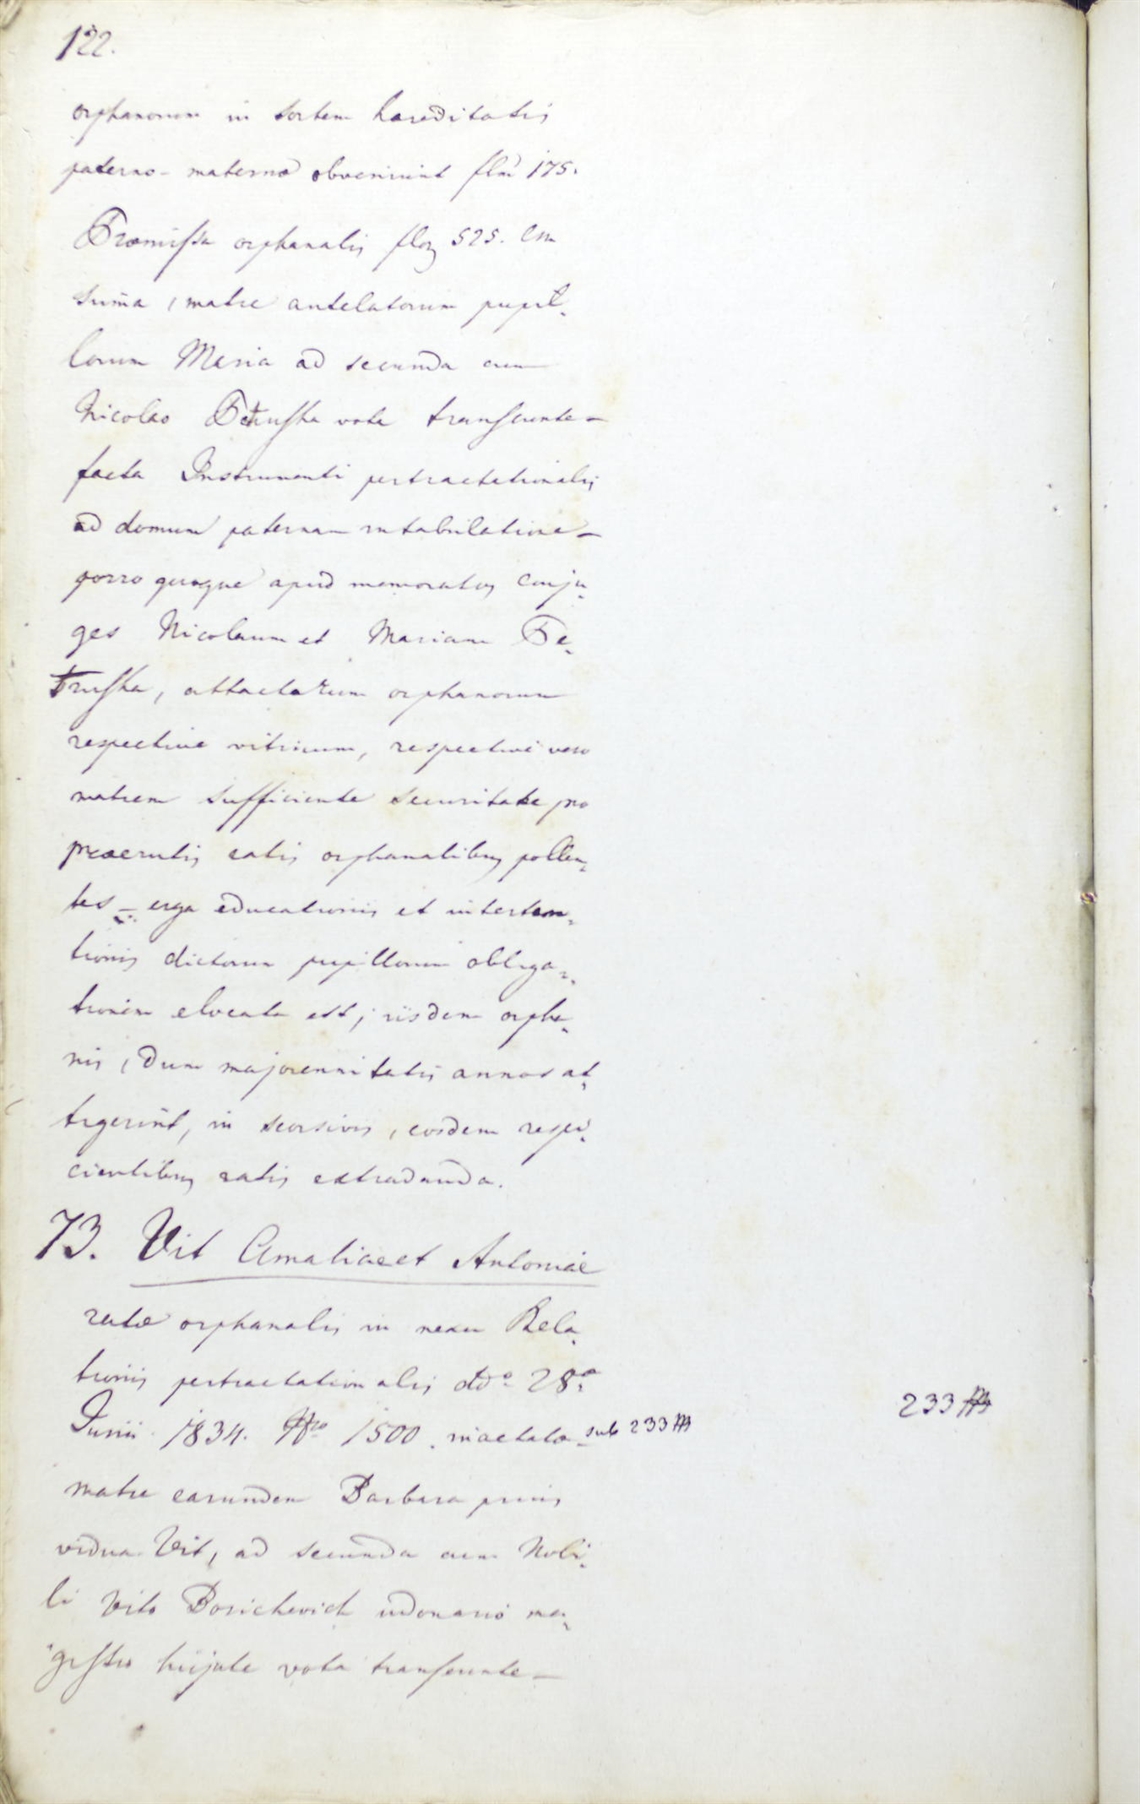 122.
orphanorum in sortem haereditatis
paterno-maternae obvenirent flni 175.
Praemissa orphanalis flor 525. Cm
suma, matre antelatorum pupil-
lorum Maria ad secunda cum
Nicolao Petrushka vota transeunte -
facta Instrumenti pertractationalis
ad domum paternam intabulatione -
porro quoque apud memoratos conju-
ges Nicolaum et Mariam Pe-
trushka, attactorum orphanorum
respective vitricum, respective vero
matrem sufficiente securitate pro
praeerutis ratis orphanalibus pollen-
tes - erga educationis et interten-
tionis dictorum pupillorum obliga-
tionem elocata est, iisdem orpha-
nis, dum majorennitatis annos at-
tigerint, in seorsivis, eosdem respi-
cientibus ratis extradanda.
73. Vit Amaliae et Antoniae
ratae orphanalis in nexu Rela-
tionis pertractationalis ddo 28a
Junii 1834. Nro 1500. inactatae sub 233
233
matre earundem Barbara prius
vidua Vit, ad secunda cum Nobi-
li Vito Porichevich udonario ma-
gistro hujate vota transeunte -